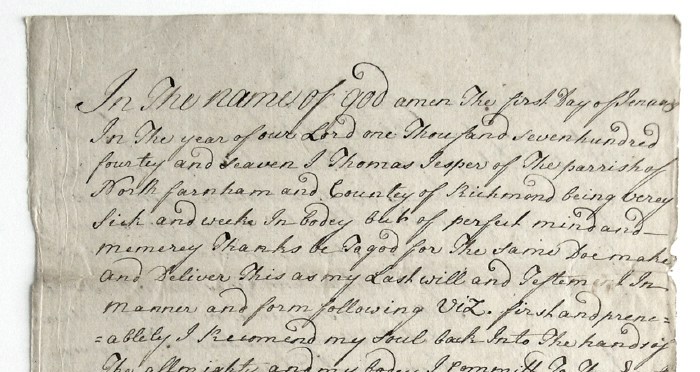 In The name of god amen The first Day of Jenuary
In The year of our Lord one Thousand sevenhundred
fourty and seaven I Thomas Jesper of The parrish of
North farnham and County of Richmond being verey
sick and weeke In bodey but of perfect mind and
memerey Thanks be To god for The same Doe make
and Deliver This as my Last will and Testement In
manner and form following Viz. first and prenc=
=ablely I Recomend my soul back Into The hands of
The allmighty and my bodey I committ To The